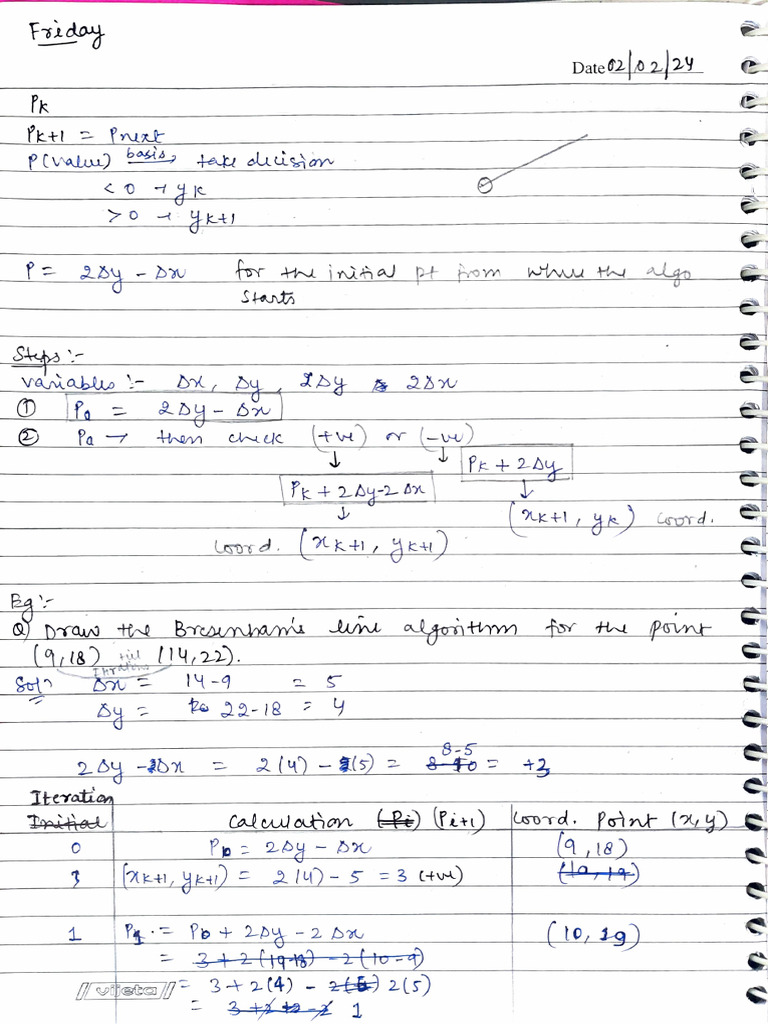 Friday
Date 02/02/24
Pk
Pk+1 = Pnext
P(value) basis, take decision
< 0 → yk
> 0 → yk+1
P = 2Δy - Δx for the initial pt from where the algo
starts
Steps :-
variables :- Δx, Δy, 2Δy & 2Δx
① P0 = 2Δy - Δx
② P0 → then check (+ve) or (-ve)
Pk + 2Δy
Pk + 2Δy-2Δx
(xk+1, yk) coord.
coord. (xk+1, yk+1)
Eg :-
Q) Draw the Bresenham's line algorithm for the point
(9,18) till (14,22).
Iterations
Solⁿ Δx = 14-9 = 5
Δy = 22-18 = 4
8-5
2Δy - Δx = 2(4) - (5) = 8-10 = +3
Iteration
Initial Calculation (Pi) (Pi+1) Coord. Point (x,y)
0 P0 = 2Δy - Δx (9,18)
3 (xk+1, yk+1) = 2(4) - 5 = 3 (+ve) (10,19)
1 P1 = P0 + 2Δy - 2Δx (10, 19)
= 3+2(19-18) - 2(10-9)
vijeta = 3+2(4) - 2(5) 2(5)
= 3+2+2-2 1